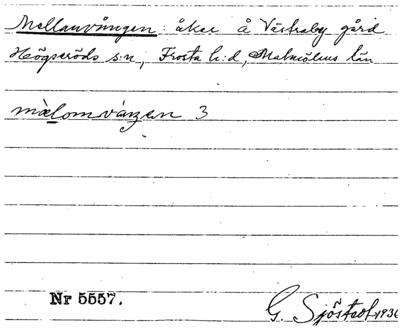 Mellanvången: åker å Västraby gård
Högseröds s:n, Frosta h:d, Malmöhus län
mælomvången 3
Nr 5557.
G. Sjöstedt 1936